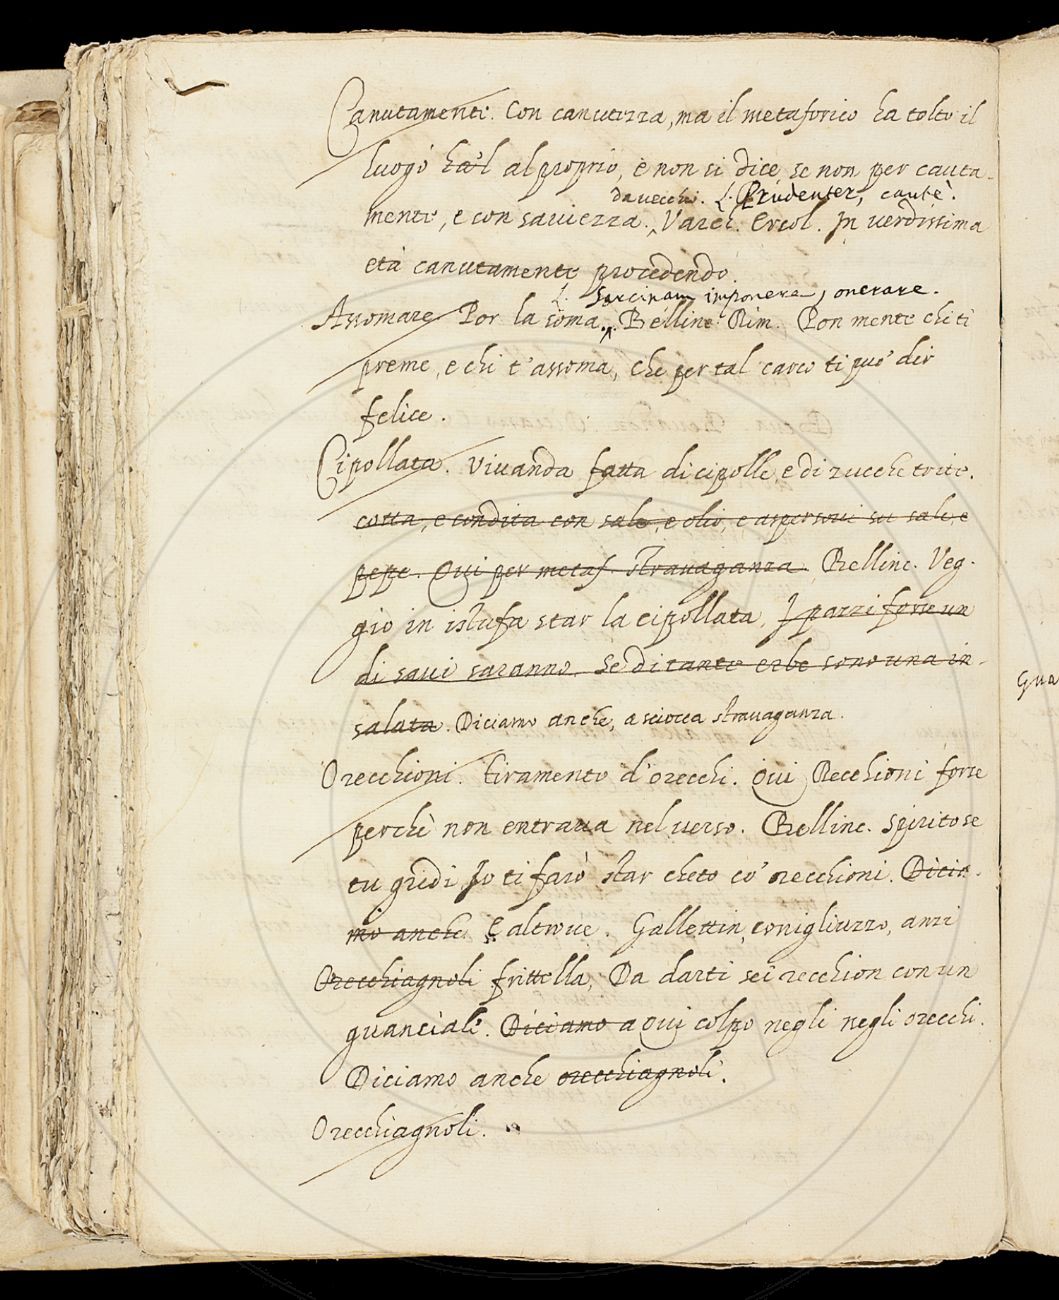 Canutamente. Con canutezza, ma il metaforico ha tolto il
luogo ha'l al proprio, e non si dice se non per cauta-
da vecchi. L. Prudenter, cautè.
mente, e con saviezza. Varch. Ercol. In verdissima
età canutamente procedendo.
L. Sarcinam imponere, onerare.
Assomare Por la soma. Bellinc. Rim. Pon mente chi ti
preme, e chi t'assoma, Che per tal carco ti può dir
felice.
Cipollata. Vivanda fatta di cipolle, e di zucche trite.
cotta, e condita con sale, e olio, e aspersovi su sale, e
pepe. Qui per metaf. Stravaganza. Bellinc. Veg-
gio in istufa star la cipollata, I pazzi forse un
di savi saranno, Se di tante erbe sono una in-
salata. Diciamo anche, a sciocca stravaganza.
Orecchioni. tiramento d'orecchi. Qui Recchioni forse
perchè non entrava nel verso. Bellinc. Spirito se
tu gridi, Io ti farò star cheto co' orecchioni. Dicia-
mo anche E altrove. Gallettin, conigliuzzo, anzi
Orecchiagnoli frittella, Da darti sei recchion con un
guanciale. Diciamo a Qui colpo negli negli orecchi.
Diciamo anche orecchiagnoli.
Orecchiagnoli.
Gua